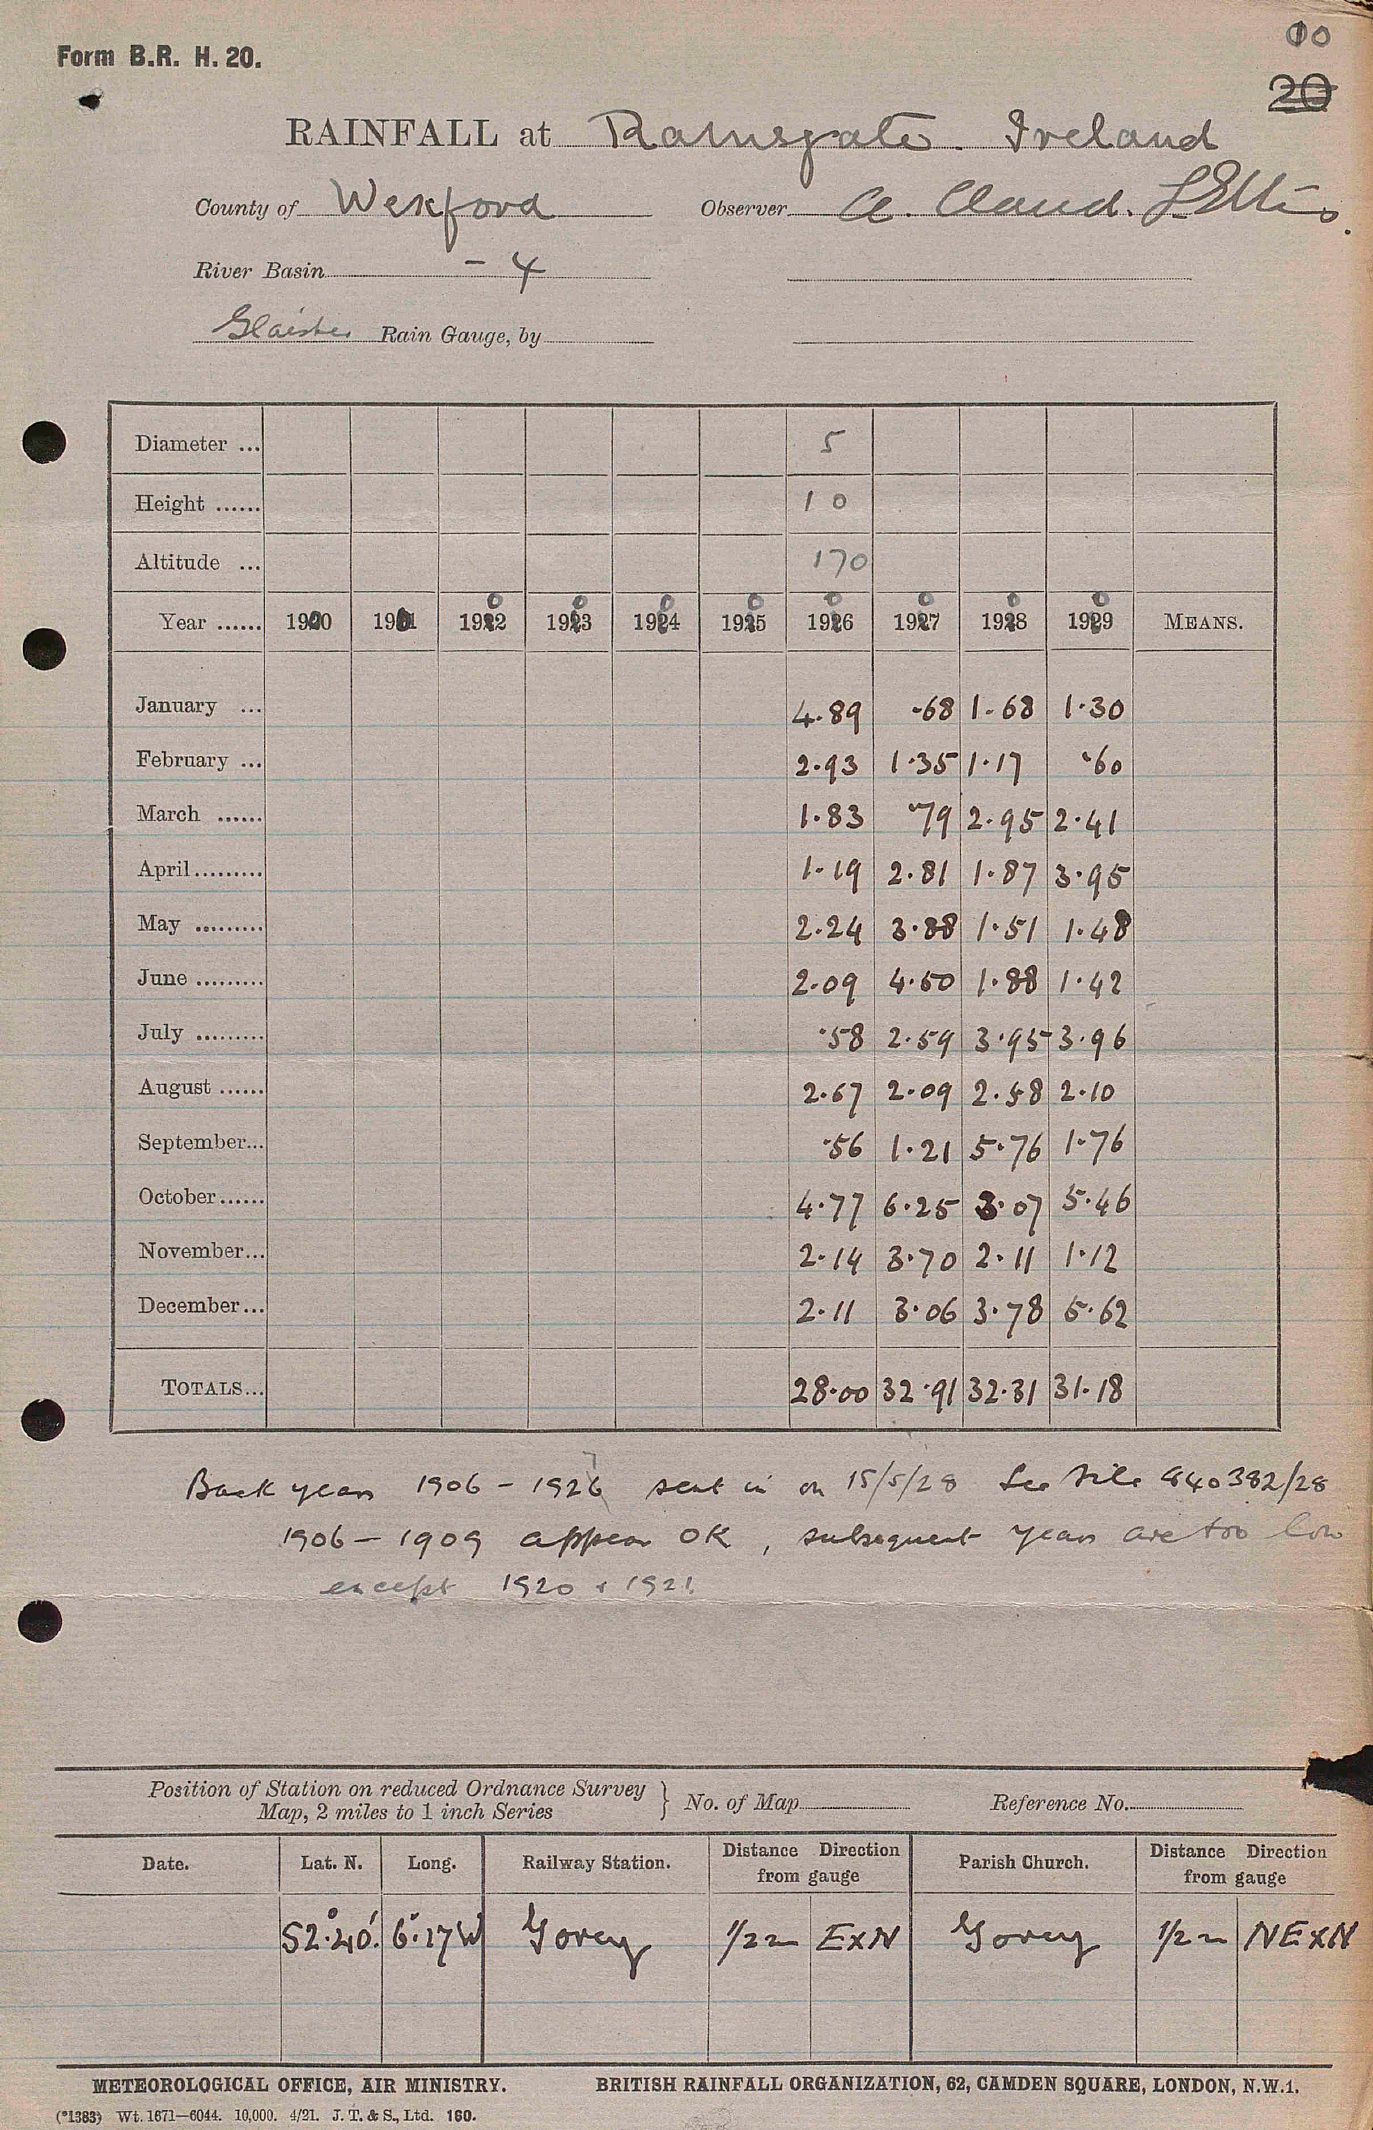 00
Form B.R. H. 20.
20
RAINFALL at Ramsgate. Ireland
County of Wexford Observer A. Claud. L. Ellis.
River Basin - 4
Glaisher Rain Gauge, by
Diameter ... 5
Height ...... 10
Altitude ... 170
0 0 0 0 0 0 0 0
Year ...... 1900 1901 1922 1923 1924 1925 1926 1927 1928 1929 MEANS.
January ... 4.89 .68 1.68 1.30
February ... 2.93 1.35 1.17 .60
March ...... 1.83 .79 2.95 2.41
April ......... 1.19 2.81 1.87 3.95
May ......... 2.24 3.88 1.51 1.48
June ......... 2.09 4.50 1.88 1.42
July ......... .58 2.59 3.95 3.96
August ...... 2.67 2.09 2.58 2.10
September... .56 1.21 5.76 1.76
October ...... 4.77 6.25 3.07 5.46
November... 2.14 3.70 2.11 1.12
December... 2.11 3.06 3.78 5.62
TOTALS... 28.00 32.91 32.31 31.18
Back years 1906 - 1927 sent in on 15/5/28 See File 840382/28
1906 - 1909 appear OK, subsequent years are too low
except 1920 + 1921.
Position of Station on reduced Ordnance Survey
Map, 2 miles to 1 inch Series } No. of Map Reference No.
Date. Lat. N. Long. Railway Station. Distance Direction from gauge Parish Church. Distance Direction from gauge
52°.40'. 6°.17 W Gorey 1/2 m ExN Gorey 1/2 m NExN
METEOROLOGICAL OFFICE, AIR MINISTRY. BRITISH RAINFALL ORGANIZATION, 62, CAMDEN SQUARE, LONDON, N.W.1.
(*1383) Wt. 1671—6044. 10,000. 4/21. J. T. & S., Ltd. 160.